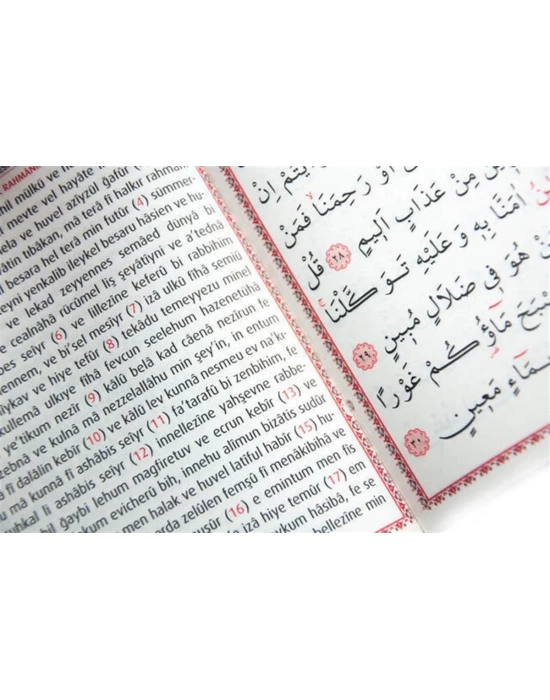 RAHMAN
mülkü ve
meyte vel hayate
ve huvel azîyzül gafûr
tıbâkan, mâ terâ fî halkır rahman
besara hel terâ min futûr (4) sümmer-
yenkalib ileykel besaru hâsien ve hu-
ve lekad zeyyennes semâed dünyâ bi
cealnâhâ rücûmel liş şeyâtiyni ve a'tednâ
seiyr (6) ve lillezîne keferû bi rabbihim
ve bi'sel mesiyr (7) izâ ulkû fîhâ semiû
ve hiye tefûr (8) tekâdu temeyyezu minel
ulkıye fîhâ fevcun seelehum hazenetühâ
e'tikum nezîr (9) kâlû belâ kad câenâ nezîrun fe
ve kulnâ mâ nezzelallâhu min şey'in, in entum
fî dalâlin kebîr (10) ve kâlû lev kunnâ nesmeu ev na'k-
mâ kunnâ fî ashâbis seiyr (11) fa'tarafû bi zenbihim, fe
li ashâbis seiyr (12) innellezîne yahşevne rabbe-
bil ğaybi lehum mağfiretuv ve ecrun kebîr (13) ve
evicherû bih, innehu alîmun bizâtis sudûr
men halak ve huvel latîful habîr (15) hu-
zelûlen femşû fî menâkibihâ ve
(16) e emintum men fis
izâ hiye temûr (17) em
hâsibâ, fe se
bellezîne min
اَوْ رَحِمَنَا فَمَنْ
مِنْ عَذَابٍ اَلِيمٍ ٢٨ قُلْ
اٰمَنَّا بِهِ وَ عَلَيْهِ تَوَكَّلْنَا
هُوَ فِي ضَلَالٍ مُبِينٍ ٢٩
مَاؤُكُمْ غَوْرًا
مَعِينٍ ٣٠